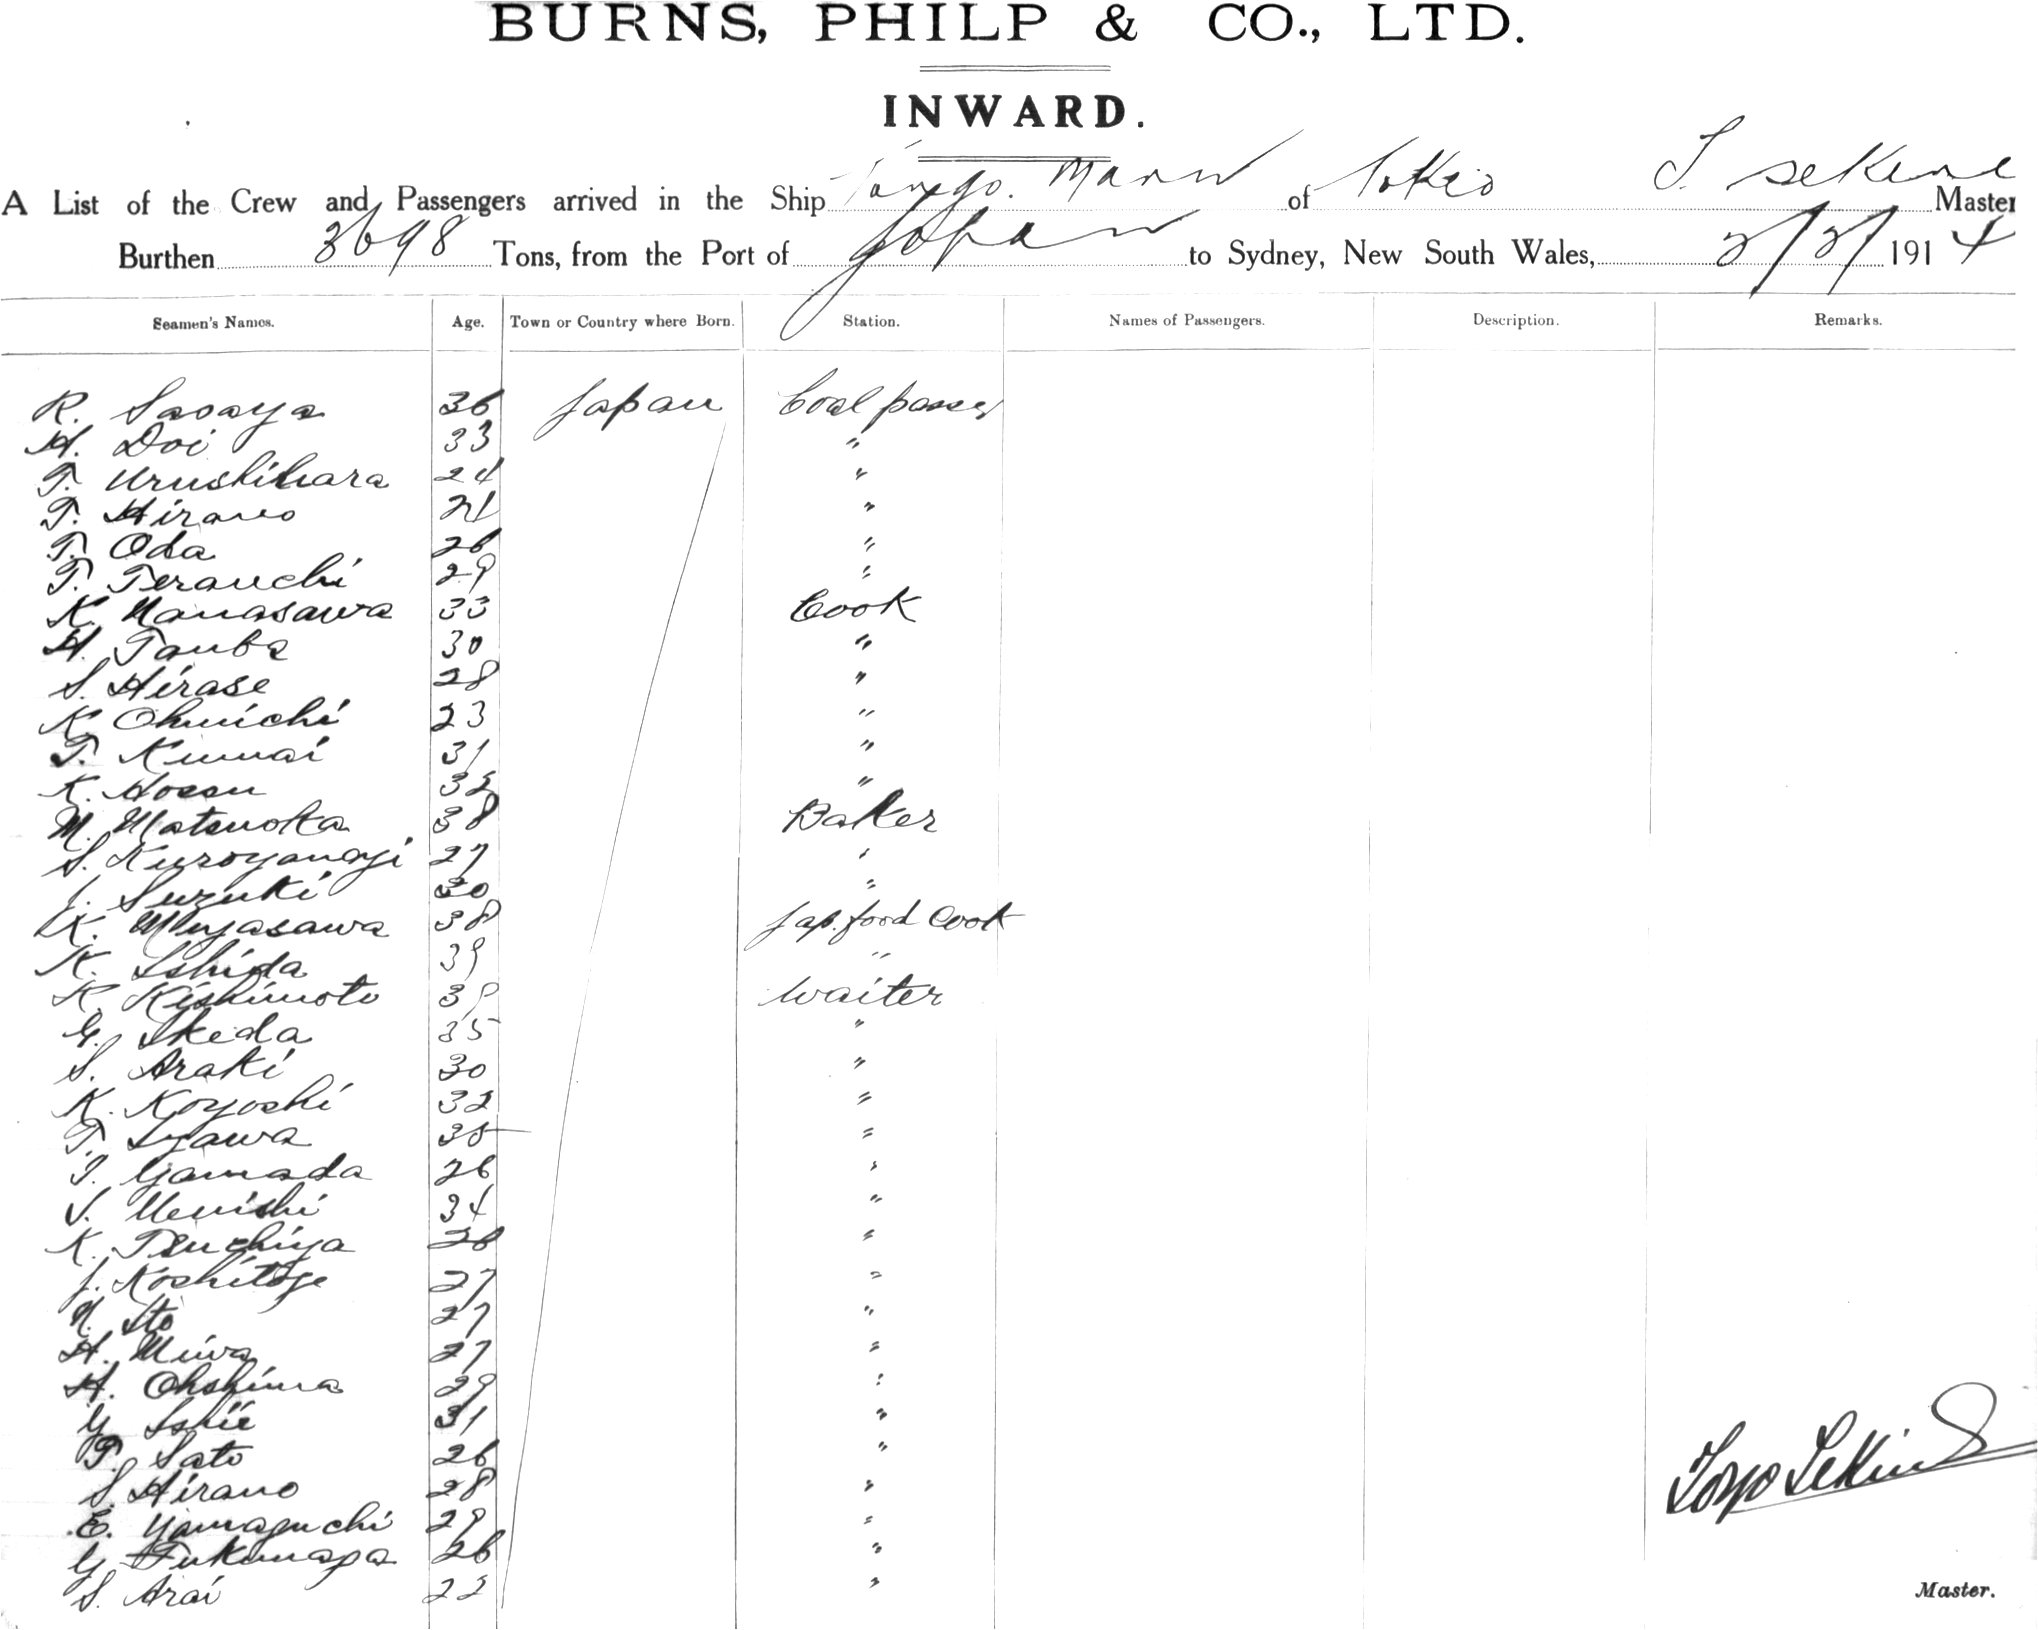 BURNS, PHILP & CO., LTD.
INWARD.
A List of the Crew and Passengers arrived in the Ship Tango Maru of Tokio T. Sekine Master
Burthen 3698 Tons, from the Port of Japan to Sydney, New South Wales, 2/2/1914
Seamen's Names. Age. Town or Country where Born. Station. Names of Passengers. Description. Remarks.
R. Sasaya 36 Japan Coal passer
H. Doi 33 "
T. Urushihara 24 "
T. Hirano 21 "
T. Oda 26 "
T. Terauchi 29 "
K. Nanasawa 33 Cook
H. Tanba 30 "
S. Hirase 28 "
K. Ohmichi 23 "
T. Kumai 31 "
K. Hosou 32 "
M. Matsuoka 38 Baker
S. Kuroyanagi 27 "
J. Suzuki 30 "
K. Miyasawa 38 Jap. food Cook
K. Ishida 39 "
K. Kishimoto 39 Waiter
G. Ikeda 35 "
S. Araki 30 "
K. Koyoshi 32 "
T. Izawa 35 "
T. Yamada 26 "
S. Uenishi 34 "
K. Tsuchiya 28 "
J. Koshitoge 27 "
N. Ito 27 "
H. Miwa 27 "
H. Ohshima 29 "
Y. Ishii 31 "
T. Sato 26 "
S. Hirano 28 "
E. Yamaguchi 29 "
Y. Fukunaga 26 "
S. Arai 22 "
Toyo Sekine
Master.